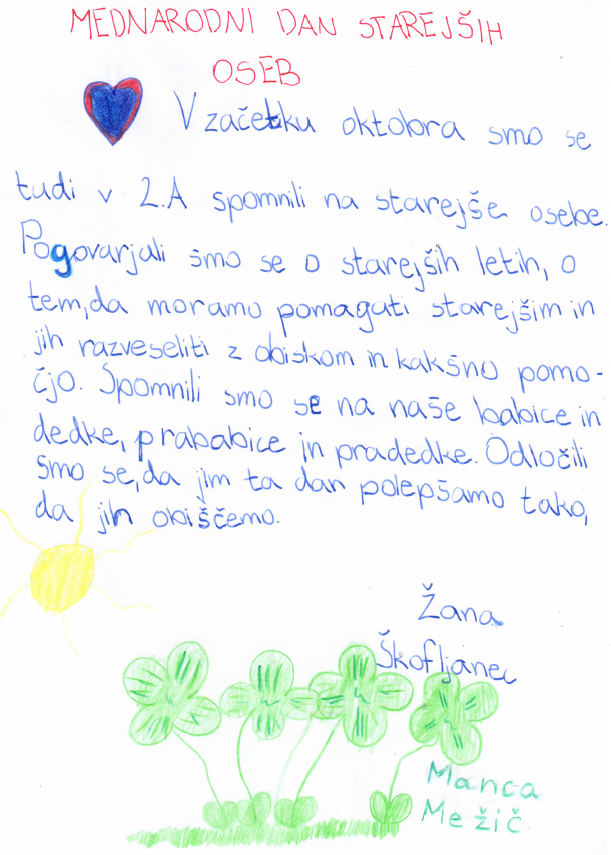 MEDNARODNI DAN STAREJŠIH
OSEB
V začetku oktobra smo se
tudi v 2.A spomnili na starejše osebe.
Pogovarjali smo se o starejših letih, o
tem, da moramo pomagati starejšim in
jih razveseliti z obiskom in kakšno pomo-
čjo. Spomnili smo se na naše babice in
dedke, prababice in pradedke. Odločili
smo se, da jim ta dan polepšamo tako,
da jih obiščemo.
Žana
Škofljanec
Manca
Mežič